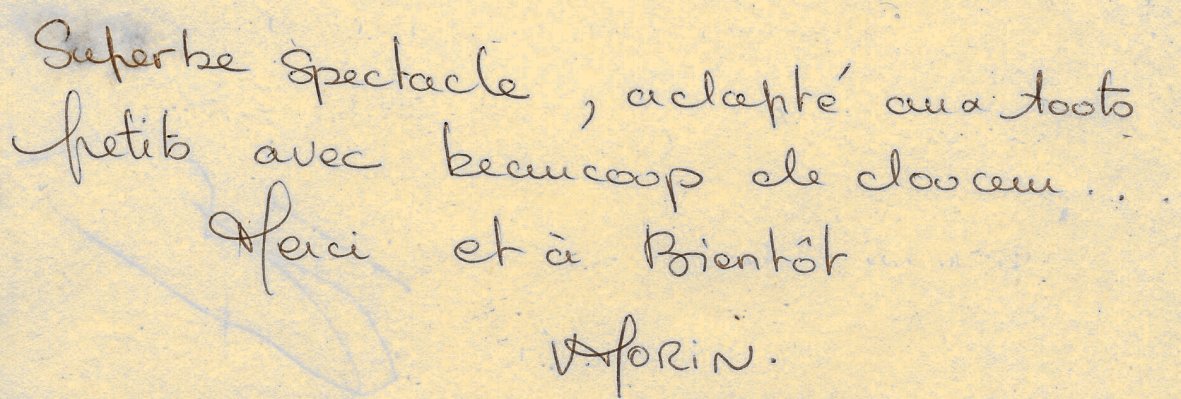 Superbe spectacle, adapté aux touts
petits avec beaucoup de douceur...
Merci et à Bientôt
V MORIN.